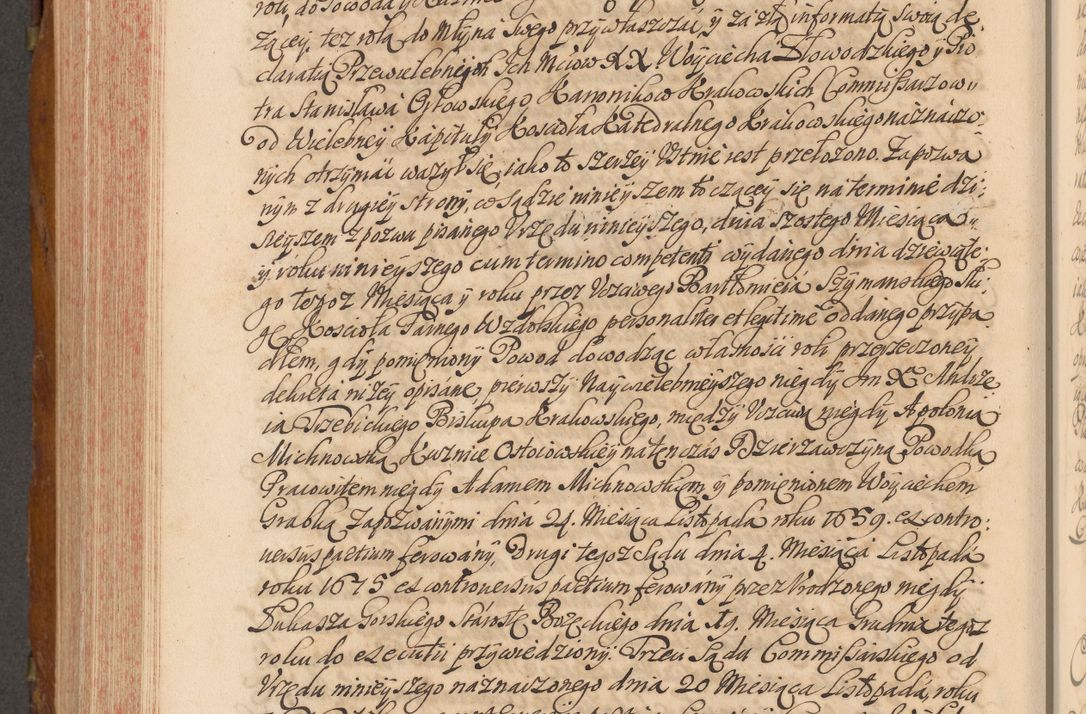 żącey, tez rolą do Młyna Swego przywłaszczai, y za złą informatą swoią de
claratą Przewielebnych Ich Mciow XX Woyciecha Słowodzkiego y Pio
tra Stanisława Orłowskiego, Kanonikow Krakowskich Commissarzow
od Wielebney Kapituły Koscioła Katedralnego Krakowskiego naznaczo
nych otrzymai ważył się, iako to szerzey Ustnie iest przełozono. Zapozwa
nym z drugiey strony, co Sądzie ninieyszem toczącey się na terminie dzi:
sieyszem z pozwu pisanego Urzędu ninieyszego, dnia szostego Miesiąca
y roku ninieyszego cum termino competenti wydanego dnia dziewiąte
go tegoz Miesiąca y roku przez Uczciwego Bartłomieia Szymanskiego Słu
gę Koscioła Farnego Wzdolskiego personaliter et legitime oddanego przypa
dłem, gdy pomieniony Powod dowodząc własnosci roli przerzeczoney
dekreta nizey opisane, pierwszy Naywielebnieyszego niegdy Jm X Andrze
ia Trzebickiego Biskupa Krakowskiego, między Uczciwą niegdy Apolonią
Michnowską Kuznice Ostoiowskiey natenczas Dzierzawczyną Powodką
Pracowitem niegdy Adamem Michnowskiem y pomienionem Woyciechem
Grabką Zapozwanymi dnia 24. Miesiąca Listopada roku 1659. ex contro:
versus partium ferowany, Drugi tegoz Sądu dnia 4. Miesiąca Listopada
roku 1675 ex controversus partium ferowany przez Urodzonego niegdy
Łukasza Gorskiego Stárostę Bozęckiego dnia 19. Miesiąca Grudnia tegoz
roku do exekutii przywiedziony. Trzeci Sądu Commissarskiego od
Urzędu ninieyszego naznaczonego dnia 20 Miesiąca Listopada, roku